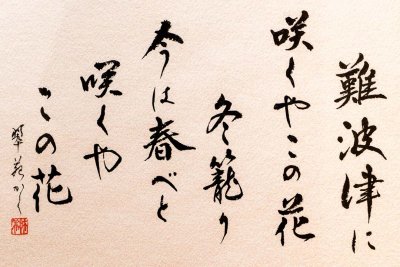 難波津に
咲くやこの花
冬籠り
今は春べと
咲くや
この花
翠苑かく